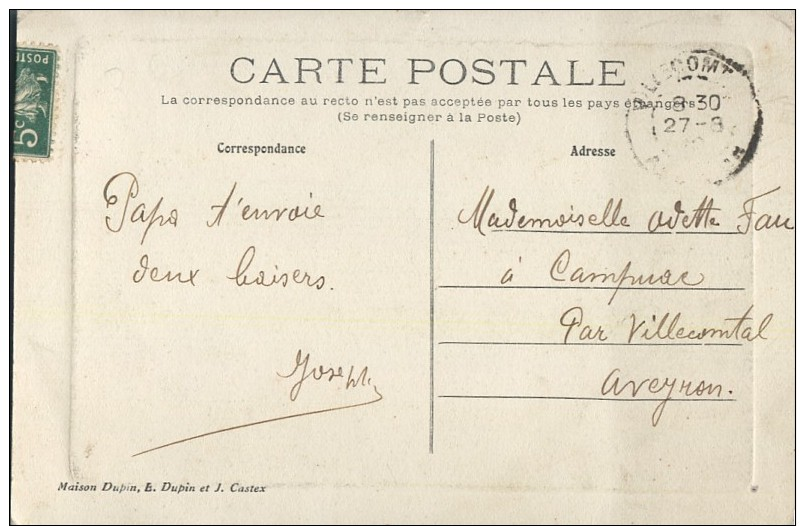 CARTE POSTALE
La correspondance au recto n'est pas acceptée par tous les pays étrangers
(Se renseigner à la Poste)
POSTE
5c
8 30
27-8
Correspondance
Papa t'envoie
deux baisers.
Joseph
Adresse
Mademoiselle Odette Fau
à Campuac
Par Villecomtal
Aveyron.
Maison Dupin, E. Dupin et J. Castex